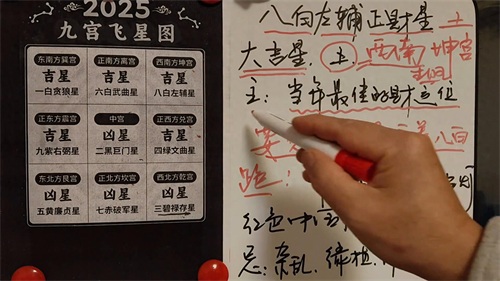 2025
九宫飞星图
东南方巽宫 正南方离宫 西南方坤宫
吉星 吉星 吉星
一白贪狼星 六白武曲星 八白左辅星
正东方震宫 中宫 正西方兑宫
吉星 凶星 吉星
九紫右弼星 二黑巨门星 四绿文曲星
东北方艮宫 正北方坎宫 西北方乾宫
凶星 凶星 凶星
五黄廉贞星 七赤破军星 三碧禄存星
八白左辅正财星 土
大吉星 土 西南 坤宫
主：当年最佳的财位
八白
红色 中
忌：杂乱、绿植